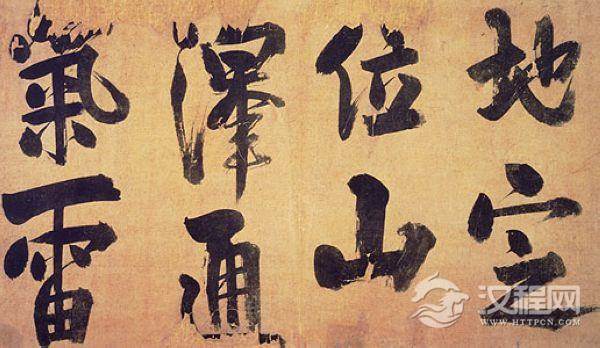 地定
位山
澤通
氣雷
汉程网
WWW.HTTPCN.COM